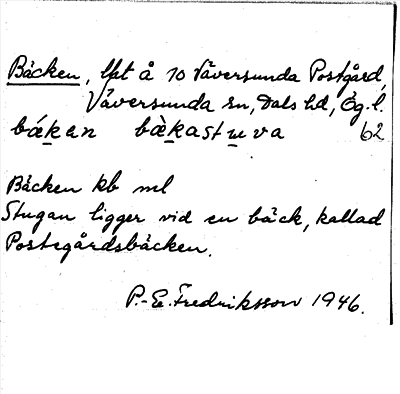 Bäcken, lht å 10 Väversunda Postgård,
Väversunda sn, Dals hd, Ög. l.
bákan bàkastuva 62
Bäcken kb ml
Stugan ligger vid en bäck, kallad
Postegårdsbäcken.
P.-E. Fredriksson 1946.